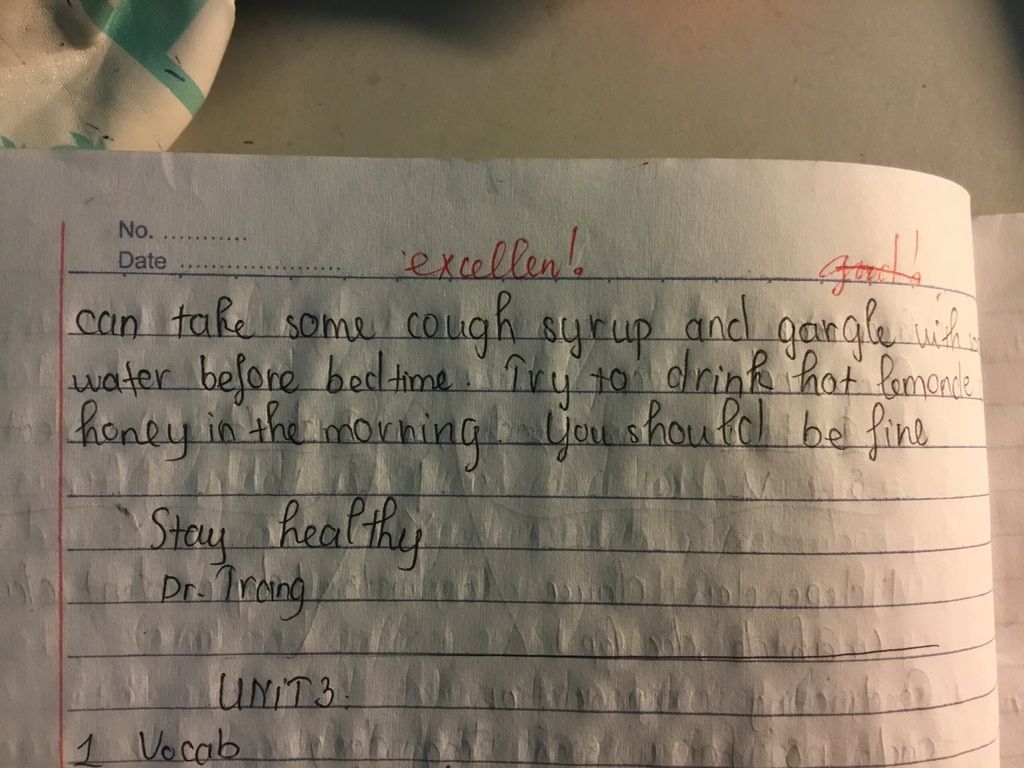 No. ...........
Date .....................
excellen!
good!
can take some cough syrup and gargle with
water before bedtime. Try to drink hot lemonde
honey in the morning. You should be fine
Stay healthy
Dr. Trang
UNIT 3:
1 Vocab